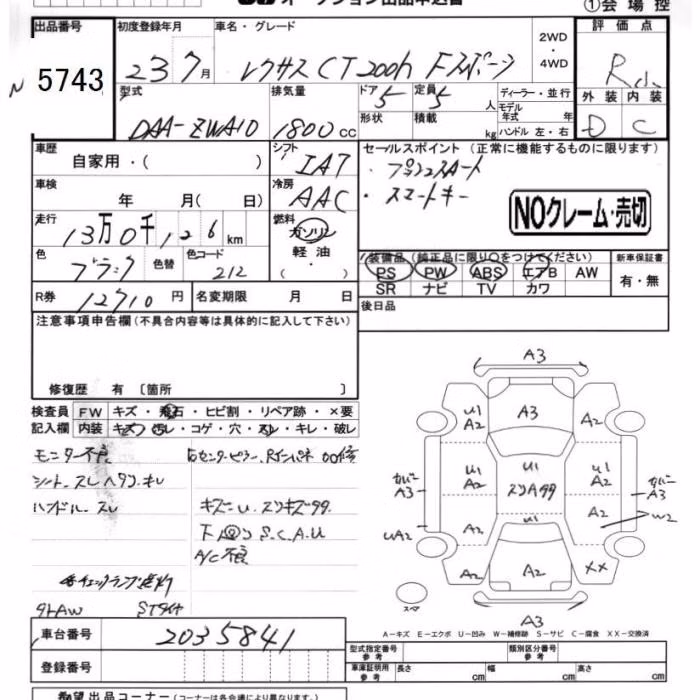 オークション出品申込書
①会場控
出品番号
初度登録年月
車名・グレード
評価点
5743
23 7月
レクサス CT200h Fスポーツ
2WD
・
4WD
R
外装 内装
D C
型式
DAA-ZWA10
排気量
1800 cc
ドア 5
定員 5 人
形状
積載 kg
ディーラー・並行
モデル
年式 年
ハンドル 左・右
車歴
自家用・( )
シフト
IAT
セールスポイント (正常に機能するものに限ります)
・プッシュスタート
・スマートキー
NOクレーム・売切
車検
年 月( 日)
冷房
AAC
走行
13万0千126 km
燃料
ガソリン
軽油
色
ブラック
色替
色コード
212
装備品 (純正品に限り○をつけてください)
新車保証書
PS PW ABS エアB AW
有・無
SR ナビ TV カワ
R券 12710 円
名変期限 月 日
後日品
注意事項申告欄 (不具合内容等は具体的に記入して下さい)
修復歴 有 〔箇所 〕
検査員
記入欄
FW キズ・飛石・ヒビ割・リペア跡・×要
内装 キズ・汚レ・コゲ・穴・スレ・キレ・破レ
モニター不良
シート スレ ヘタリ キレ
ハンドル スレ
キズ U スリキズ
S.C.A.U
A/C不良
チェックランプ点灯
A3
A3
U1
A2
A2
U1
A2
U1
U1
A2
カバー
A3
スリA99
カバー
A3
A2
W2
UA2
A2
U1
A2
A2
XX
スペア
A3
A-キズ E-エクボ U-凹み W-補修跡 S-サビ C-腐食 XX-交換済
車台番号 2035841
登録番号
型式指定番号
参考
類別区分番号
参考
車庫証明用
参考
長さ cm
幅 cm
高さ cm
希望出品コーナー (コーナーは各会場により異なります。)